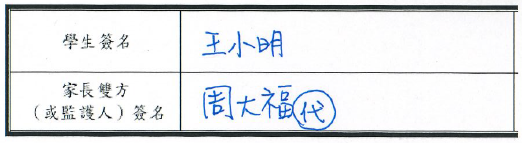 學生簽名 王小明
家長雙方
（或監護人）簽名 周大福代